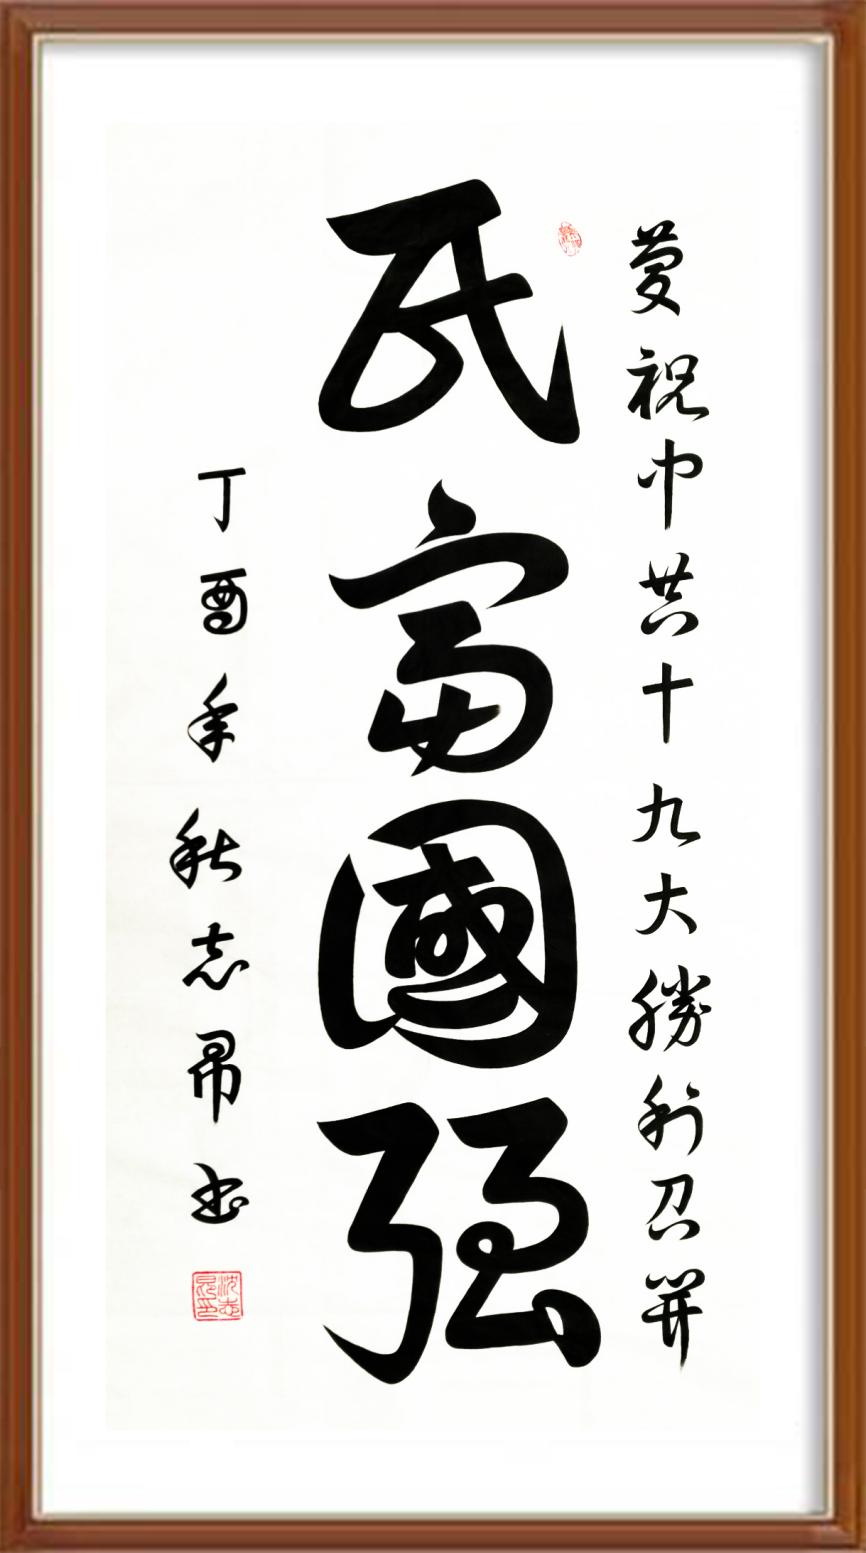 慶祝中共十九大勝利召開
民富國强
丁酉年秋志昂書